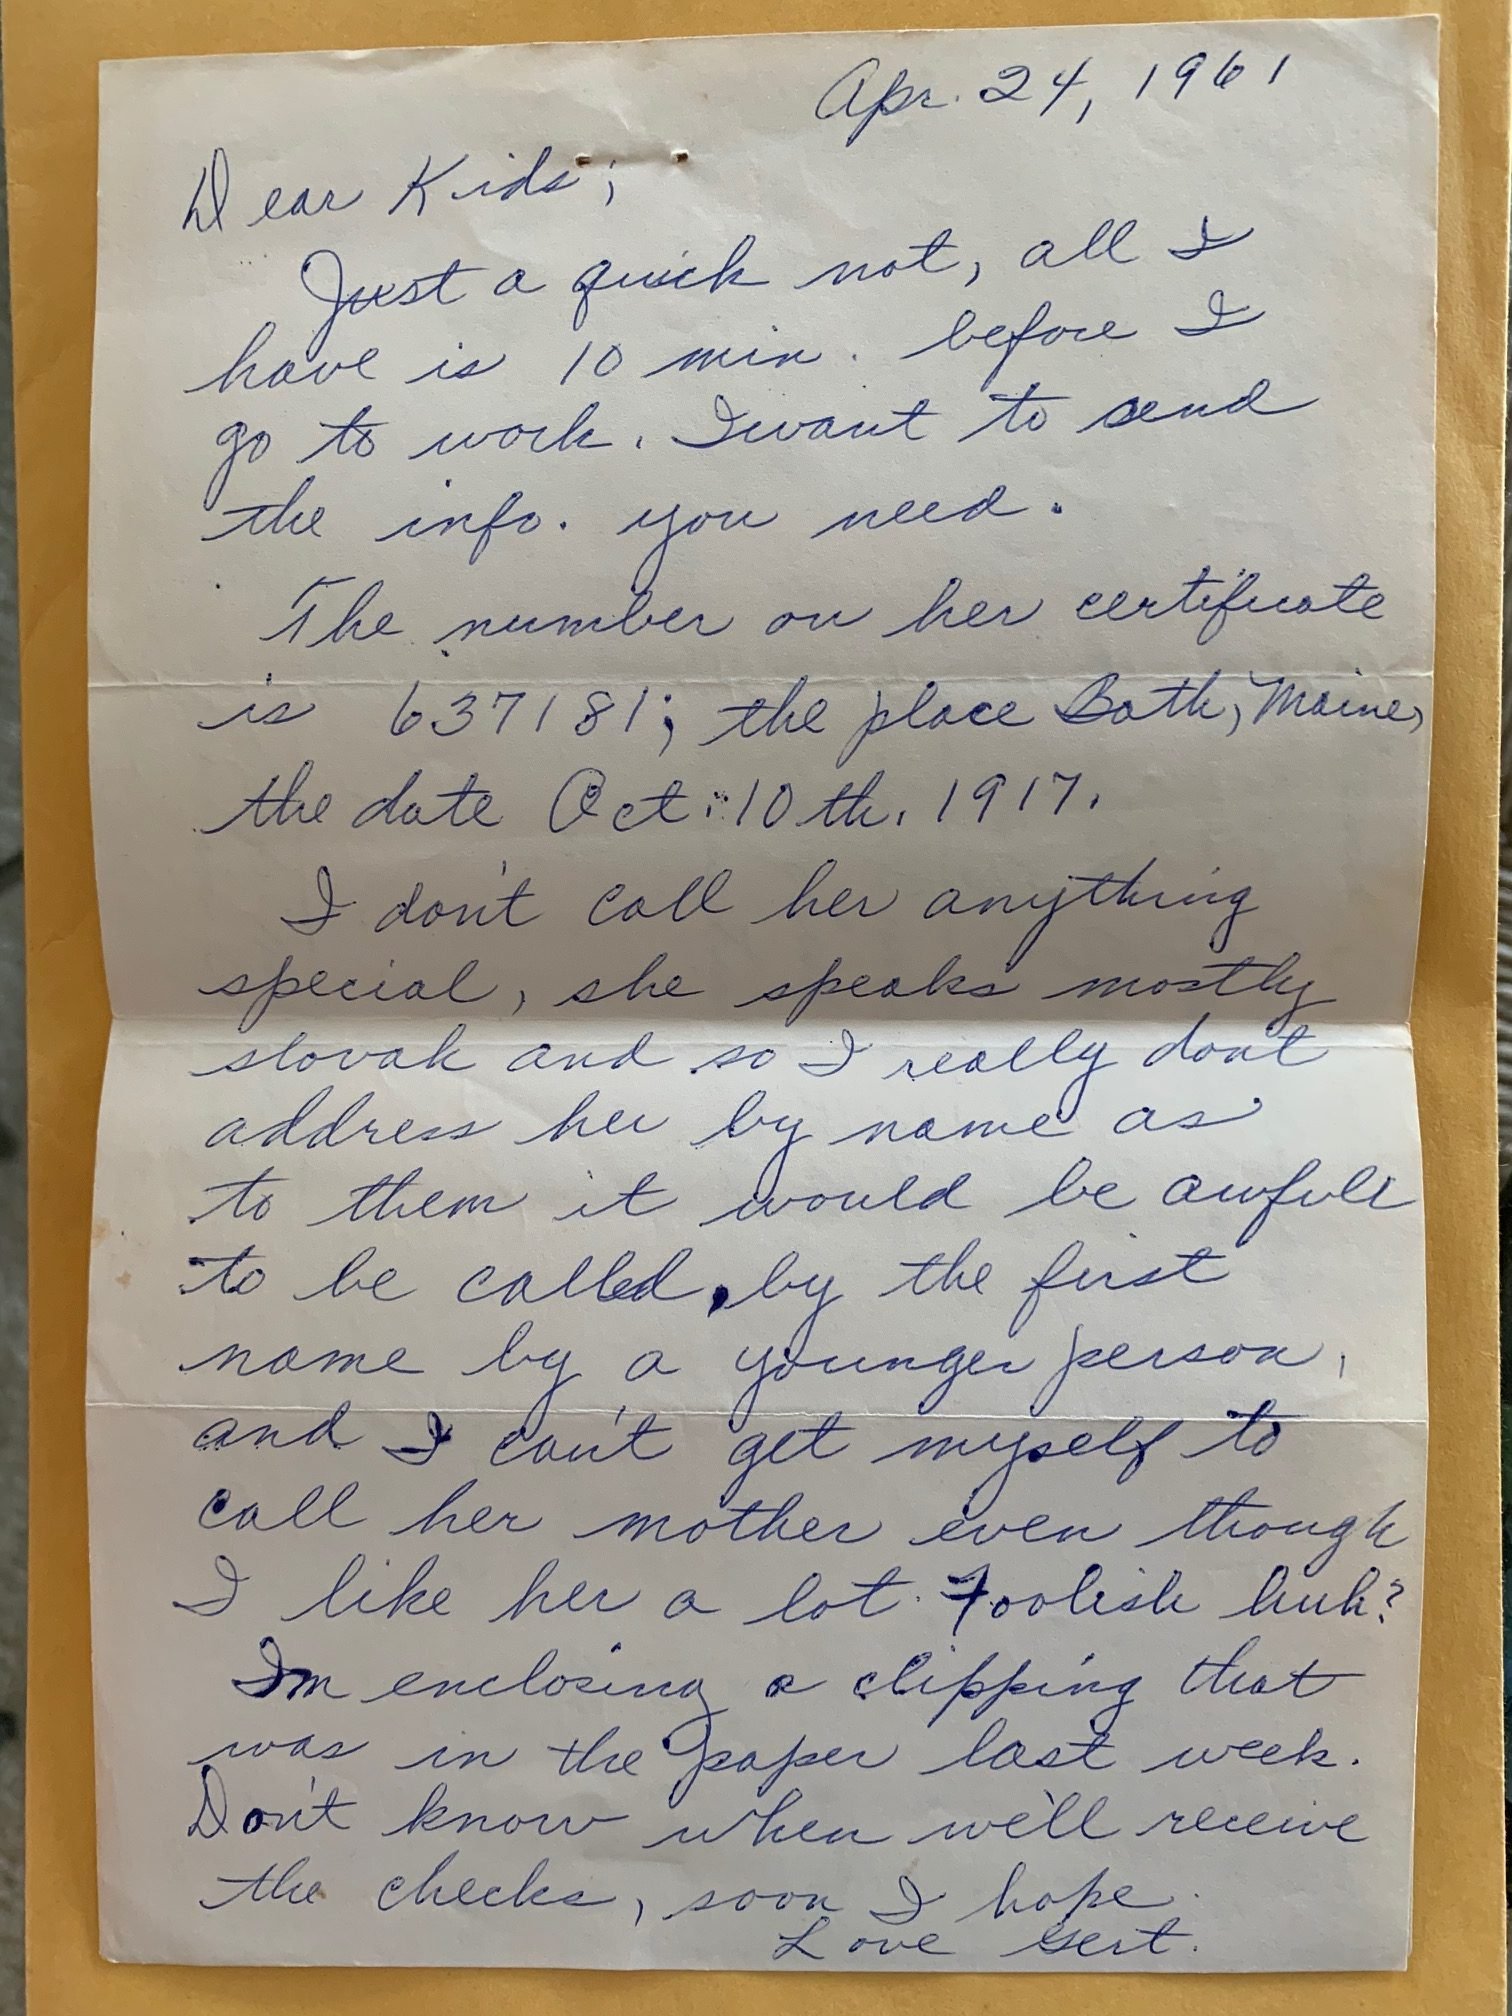 Apr. 24, 1961
Dear Kids;
Just a quick not, all I
have is 10 min. before I
go to work. I want to send
the info. you need.
The number on her certificate
is 637181; the place Bath, Maine,
the date Oct. 10th. 1917.
I don't call her anything
special, she speaks mostly
slovak and so I really dont
address her by name as
to them it would be awfull
to be called, by the first
name by a younger person,
and I can't get myself to
call her mother even though
I like her a lot. Foolish huh?
I'm enclosing a clipping that
was in the paper last week.
Don't know when we'll receive
the checks, soon I hope.
Love Gert.